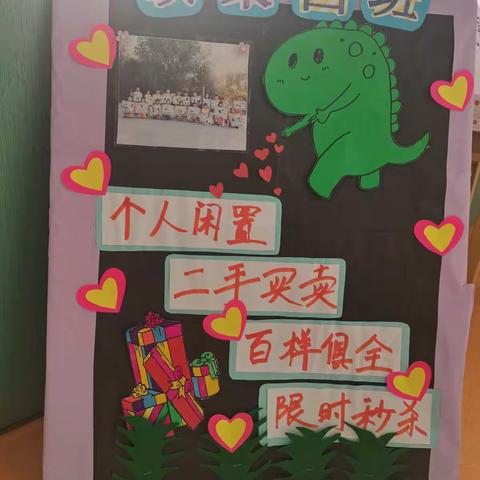 个人闲置
二手买卖
百样俱全
限时秒杀